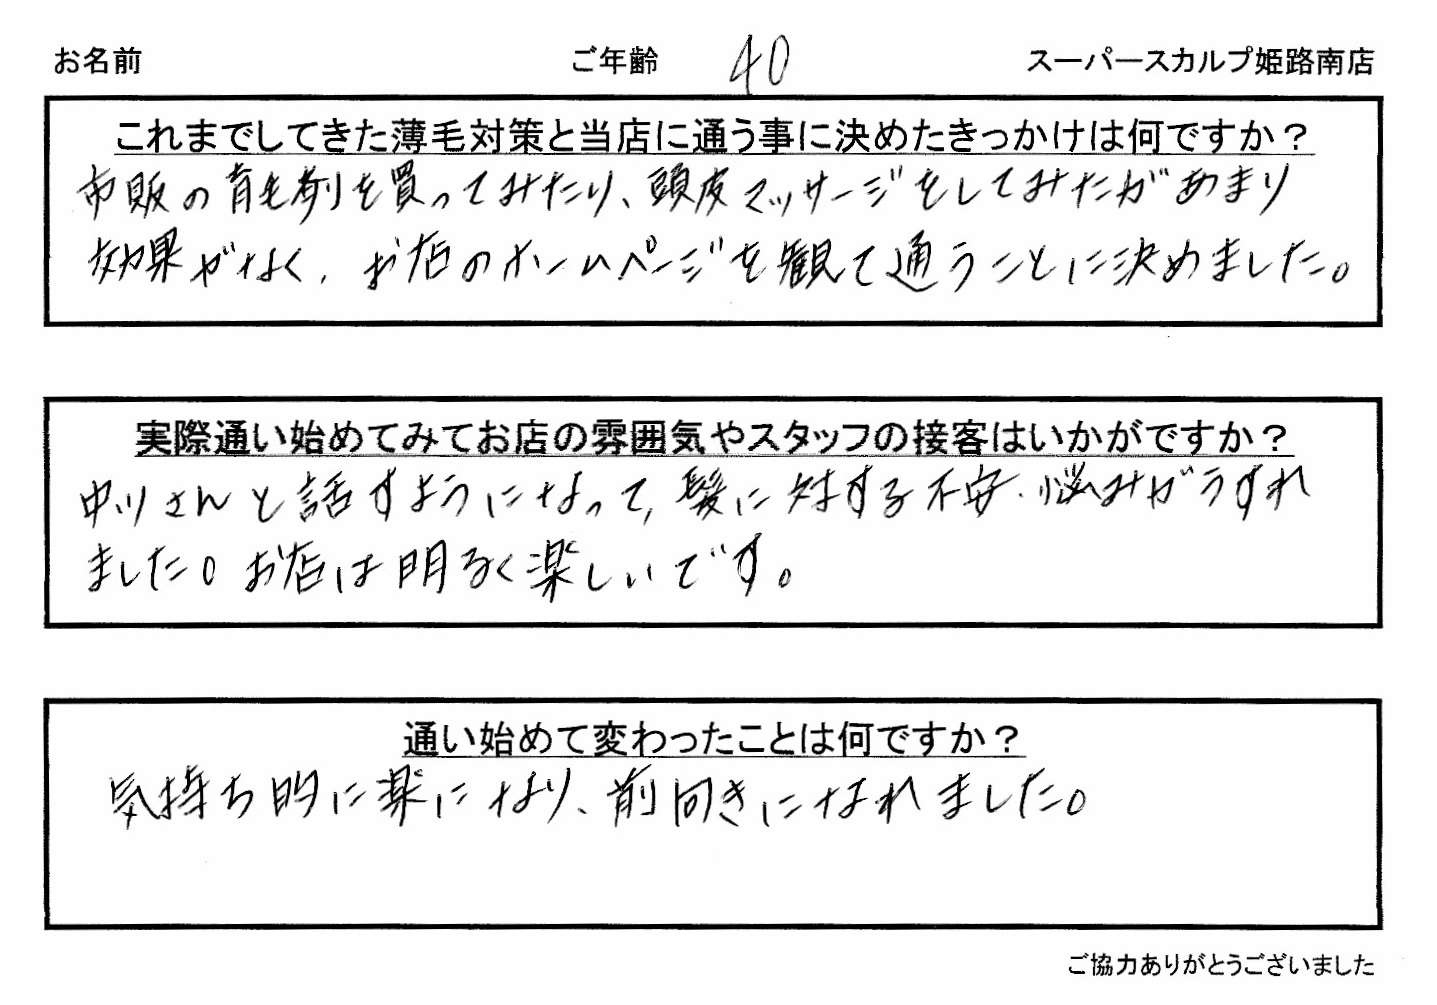 お名前 ご年齢 40 スーパースカルプ姫路南店
これまでしてきた薄毛対策と当店に通う事に決めたきっかけは何ですか？
市販の育毛剤を買ってみたり、頭皮マッサージをしてみたがあまり
効果がなく、お店のホームページを観て通うことに決めました。
実際通い始めてみてお店の雰囲気やスタッフの接客はいかがですか？
中川さんと話すようになって、髪に対する不安、悩みがうすれ
ました。お店は明るく楽しいです。
通い始めて変わったことは何ですか？
気持ち的に楽になり、前向きになれました。
ご協力ありがとうございました